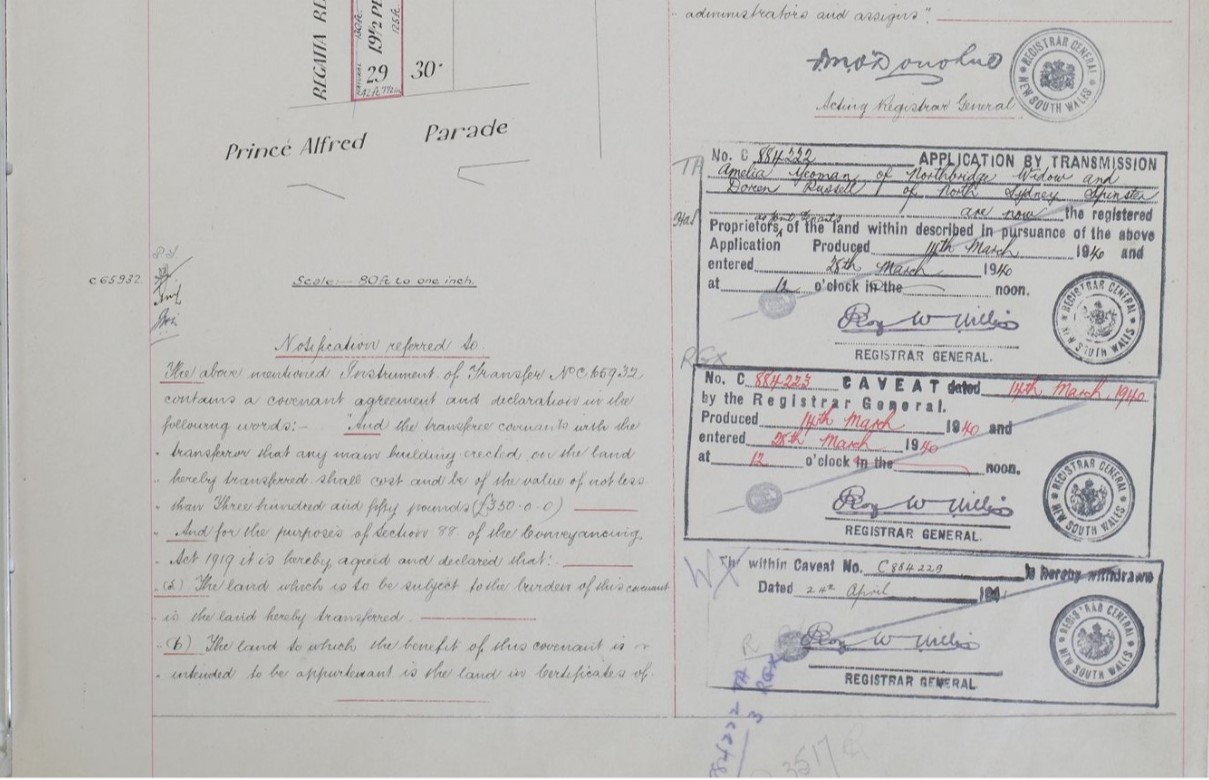 REGATTA
19½
29
30
Prince Alfred Parade
C65932
Scale:- 80ft to one inch.
Notification referred to
The above mentioned Instrument of Transfer No C 65932
contains a covenant agreement and declaration in the
following words:- "And the transferee covenants with the
" transferor that any main building erected on the land
" hereby transferred shall cost and be of the value of not less
" than Three hundred and fifty pounds (£350-0-0)
" And for the purposes of Section 88 of the Conveyancing
" Act 1919 it is hereby agreed and declared that:-
" (a) The land which is to be subject to the burden of this covenant
" is the land hereby transferred.
" (b) The land to which the benefit of this covenant is
" intended to be appurtenant is the land in Certificates of
" administrators and assigns".
Acting Registrar General
REGISTRAR GENERAL NEW SOUTH WALES
TA
No. C 884222 APPLICATION BY TRANSMISSION
Amelia Yeoman of Northbridge Widow and
Doreen Russell of North Sydney Spinster
are now the registered
Proprietors of the land within described in pursuance of the above
Application Produced 14th March 1940 and
entered 28th March 1940
at 12 o'clock in the noon.
Roy W Willis
REGISTRAR GENERAL.
REGISTRAR GENERAL NEW SOUTH WALES
RGX
No. C 884223 CAVEAT dated 14th March 1940
by the Registrar General.
Produced 14th March 1940 and
entered 28th March 1940
at 12 o'clock in the noon.
Roy W Willis
REGISTRAR GENERAL.
REGISTRAR GENERAL NEW SOUTH WALES
WX
within Caveat No. is hereby withdrawn
Dated April 194
Roy W Willis
REGISTRAR GENERAL
REGISTRAR GENERAL NEW SOUTH WALES
84222 TA
3 RGX
3517